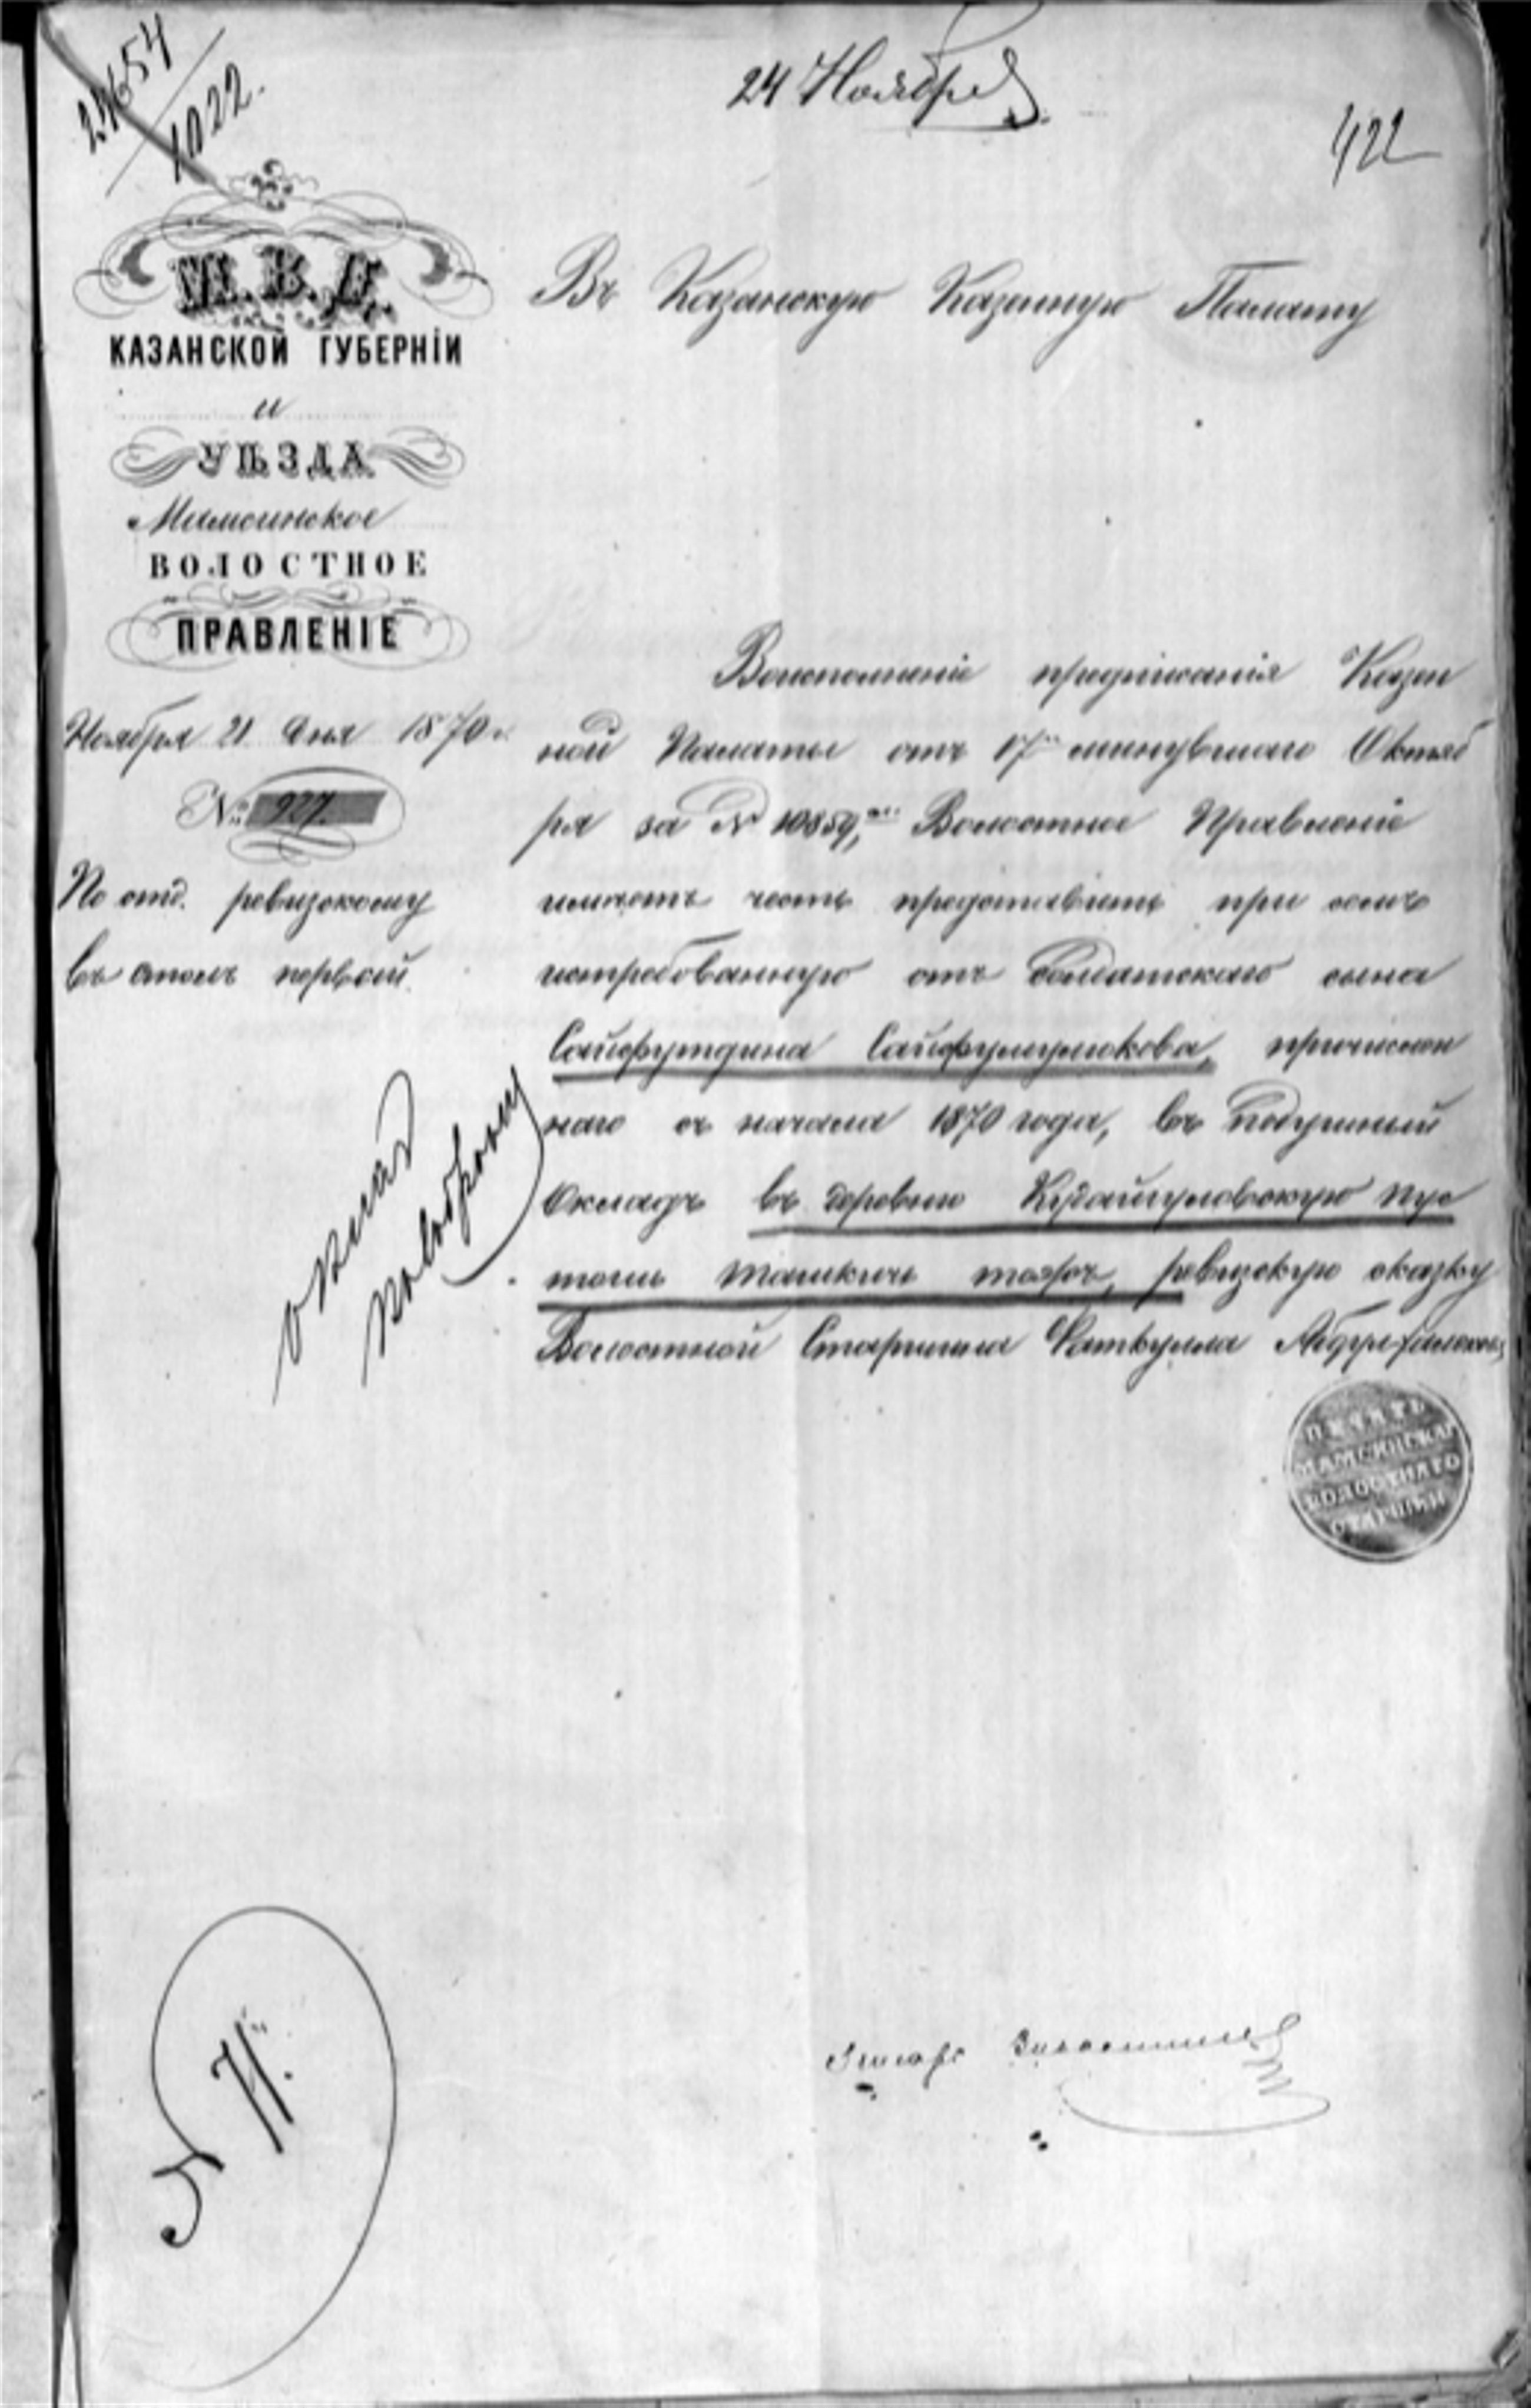 24 Ноября
24654
1022.
422
М.В.Д.
КАЗАНСКОЙ ГУБЕРНІИ
и
УѢЗДА
Мамсинское
ВОЛОСТНОЕ
ПРАВЛЕНІЕ
Ноября 21 дня 1870 г.
№ 927.
По отд. ревизскому
въ столъ первый.
Въ Казанскую Казенную Палату
Восполненіе предписанія Казен
ной Палаты отъ 17 минувшаго Октяб
ря за № 10859, Волостное Правленіе
имѣетъ честь представить при семъ
истребованную отъ солдатскаго сына
Сайфутдина Сайфулмулюкова, причислен
наго съ начала 1870 года, въ подушный
Окладъ въ деревню Кудашгуловскую пус
тошь ташкичь тожъ, ревизскую сказку
Волостной Старшина Фаткулла
оклад
повѣрону
ПЕЧАТЬ
МАМСИНСКАГ
ВОЛОСТНАГО
СТАРШИН
Писарь
Н.